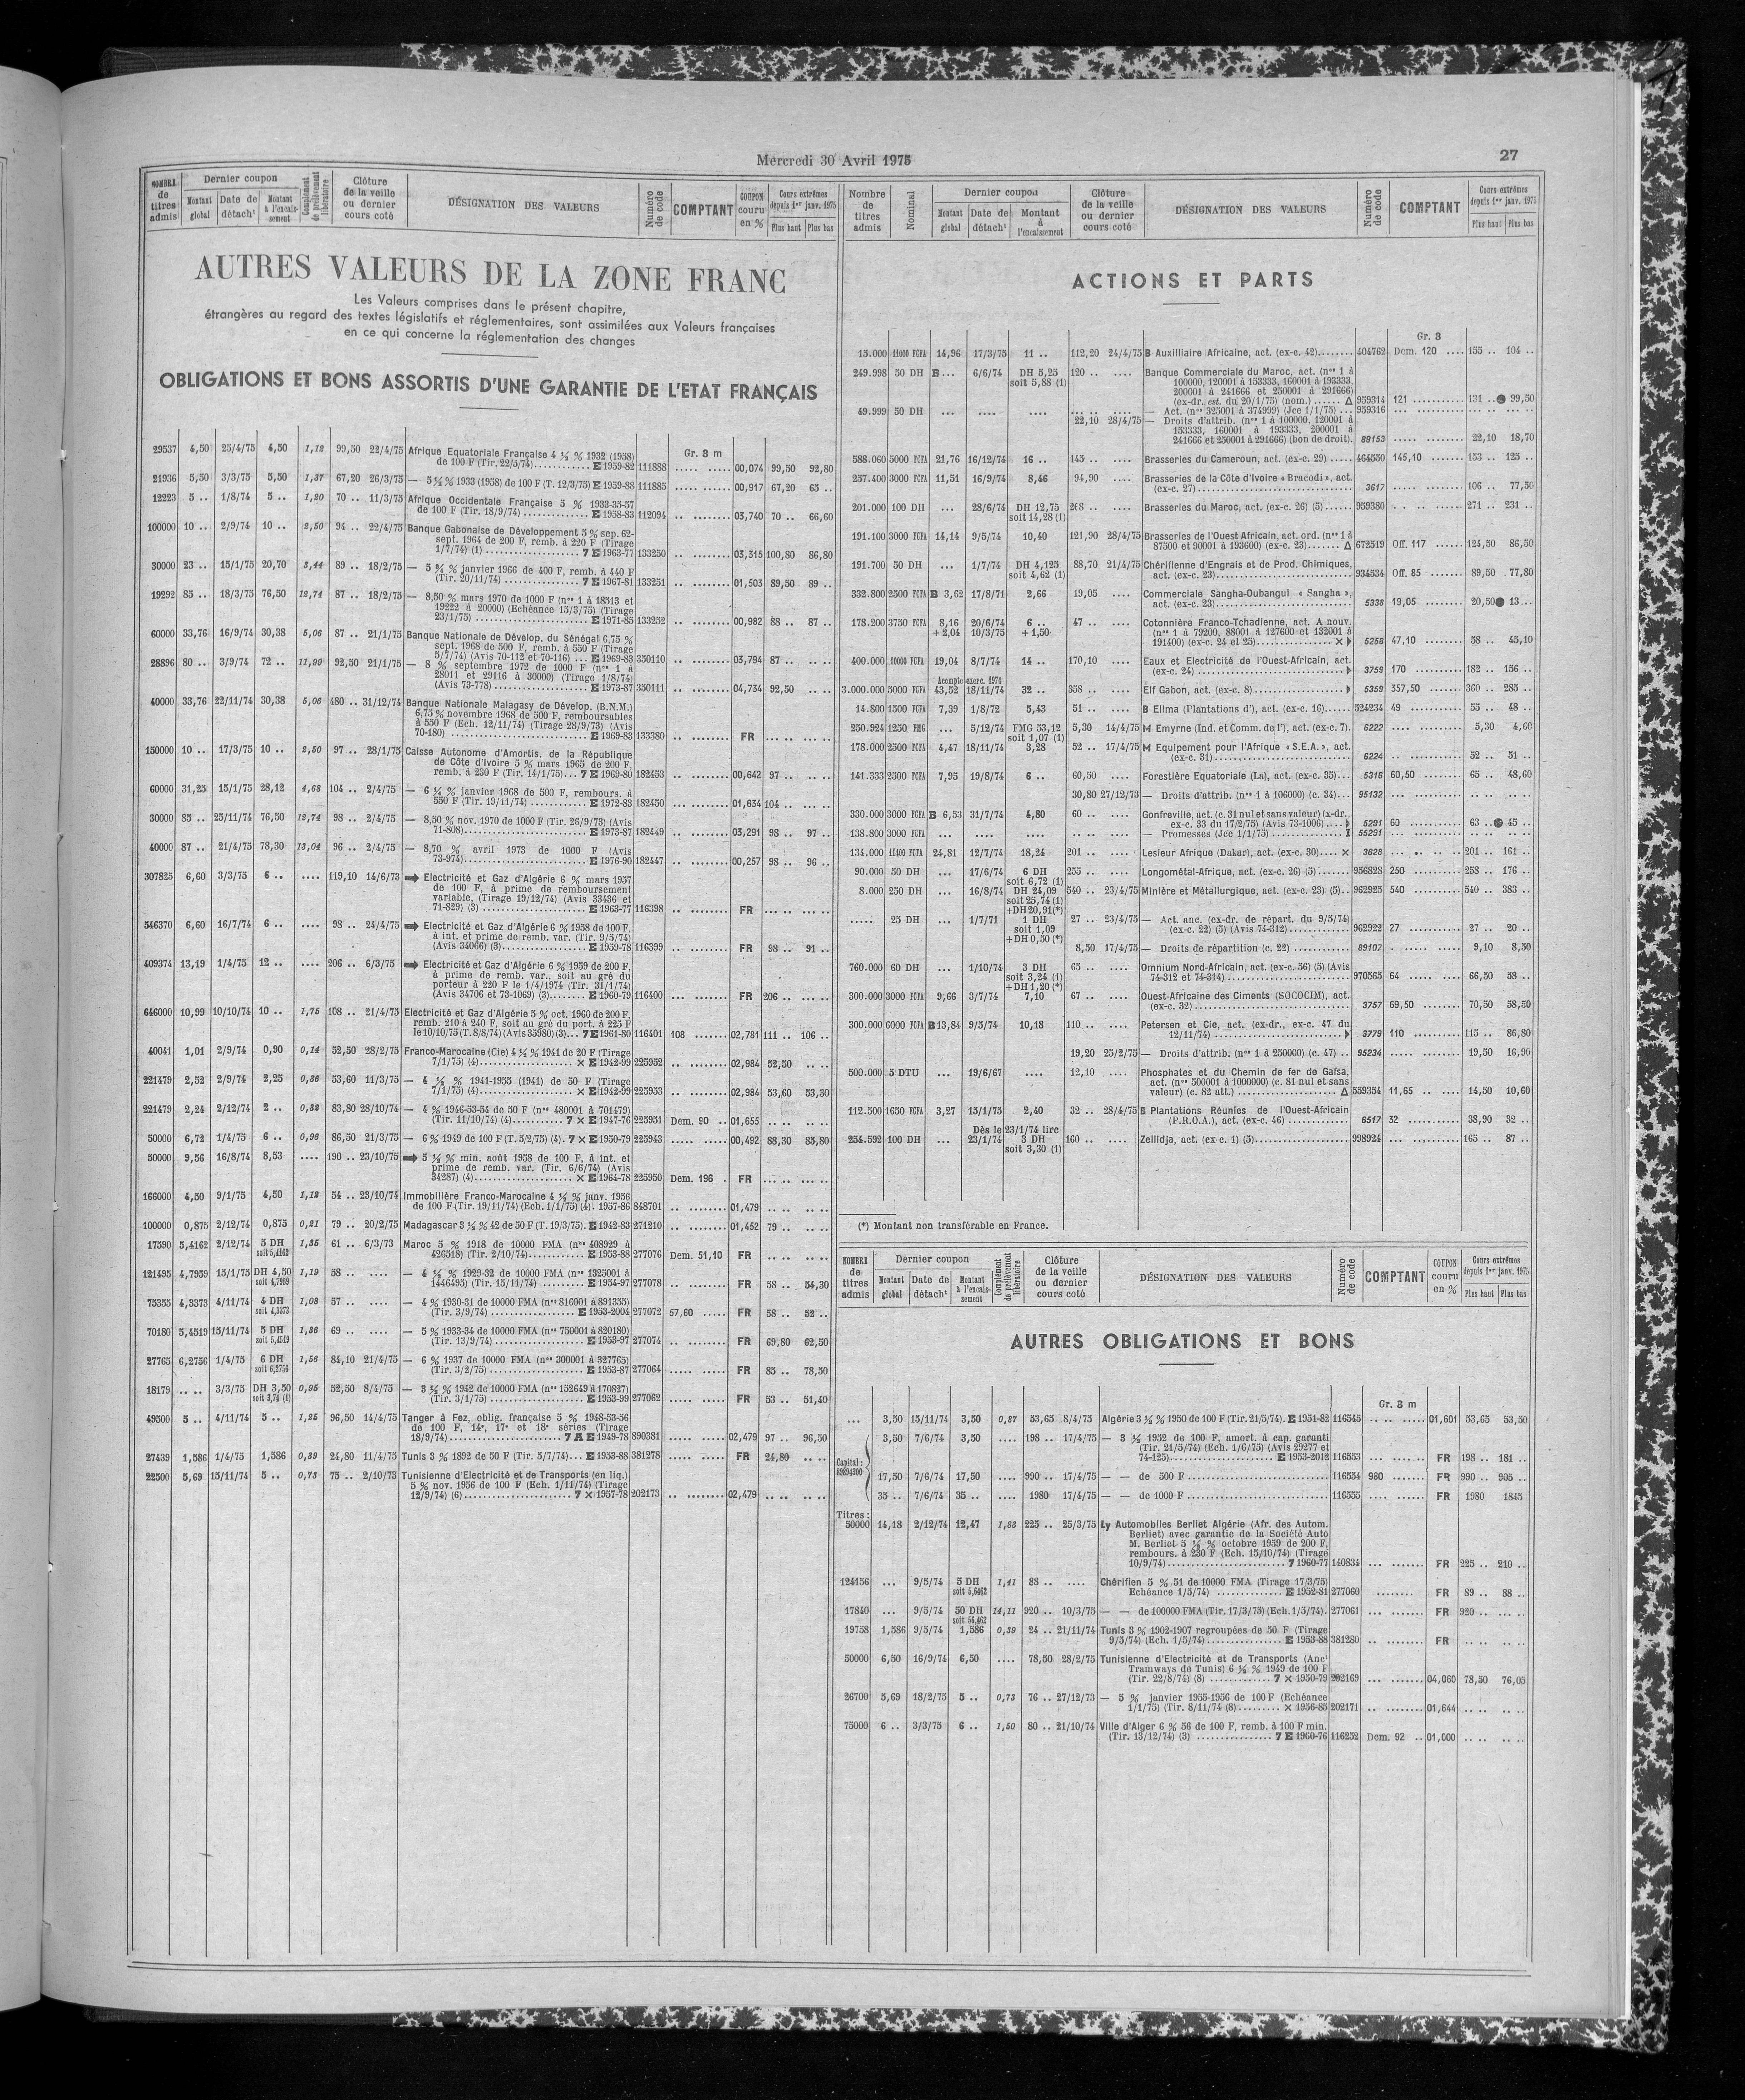 Mercredi 30 Avril 1975
27
NOMBRE de titres admis
Dernier coupon
Montant global
Date de détach¹
Montant à l'encais-sement
Complément de prélèvement libératoire
Clôture de la veille ou dernier cours coté
DÉSIGNATION DES VALEURS
Numéro de code
COMPTANT
COUPON couru en %
Cours extrêmes depuis 1er janv. 1975
Plus haut
Plus bas
AUTRES VALEURS DE LA ZONE FRANC
Les Valeurs comprises dans le présent chapitre,
étrangères au regard des textes législatifs et réglementaires, sont assimilées aux Valeurs françaises
en ce qui concerne la réglementation des changes
OBLIGATIONS ET BONS ASSORTIS D'UNE GARANTIE DE L'ETAT FRANÇAIS
Gr. 8 m
29537 4,50 25/4/75 4,50 1,12 99,50 22/4/75 Afrique Equatoriale Française 4 ½ % 1932 (1958)
de 100 F (Tir. 22/5/74) E 1959-82 111888 ..... ..... 00,074 99,50 92,80
21936 5,50 3/3/75 5,50 1,37 67,20 26/3/75 — 5 ½ % 1933 (1958) de 100 F (T. 12/3/75) E 1959-88 111885 ..... ..... 00,917 67,20 65 ..
12223 5 .. 1/8/74 5 .. 1,20 70 .. 11/3/75 Afrique Occidentale Française 5 % 1933-35-57
de 100 F (Tir. 18/9/74) E 1958-83 112094 .. ........ 03,740 70 .. 66,60
100000 10 .. 2/9/74 10 .. 2,50 94 .. 22/4/75 Banque Gabonaise de Développement 5 % sep. 62-
sept. 1964 de 200 F, remb. à 220 F (Tirage
1/7/74) (1) 7 E 1963-77 133250 .. ........ 03,315 100,80 86,80
30000 23 .. 15/1/75 20,70 3,44 89 .. 18/2/75 — 5 ¾ % janvier 1966 de 400 F, remb. à 440 F
(Tir. 20/11/74) 7 E 1967-81 133251 .. ........ 01,503 89,50 89 ..
19292 85 .. 18/3/75 76,50 12,74 87 .. 18/2/75 — 8,50 % mars 1970 de 1000 F (nos 1 à 18513 et
19222 à 20000) (Echéance 15/3/75) (Tirage
23/1/75) E 1971-85 133252 .. ........ 00,982 88 .. 87 ..
60000 33,76 16/9/74 30,38 5,06 87 .. 21/1/75 Banque Nationale de Dévelop. du Sénégal 6,75 %
sept. 1968 de 500 F, remb. à 550 F (Tirage
5/7/74) (Avis 70-112 et 70-116) ... E 1969-83 350110 .. ........ 03,794 87 .. .. ..
28896 80 .. 3/9/74 72 .. 11,99 92,50 21/1/75 — 8 % septembre 1972 de 1000 F (nos 1 à
28011 et 29116 à 30000) (Tirage 1/8/74)
(Avis 73-778) E 1973-87 350111 .. ........ 04,734 92,50 .. ..
40000 33,76 22/11/74 30,38 5,06 480 .. 31/12/74 Banque Nationale Malagasy de Dévelop. (B.N.M.)
6,75 % novembre 1968 de 500 F, remboursables
à 550 F (Ech. 12/11/74) (Tirage 28/9/73) (Avis
70-180) E 1969-83 133380 .. ........ FR ... .. .. ..
150000 10 .. 17/3/75 10 .. 2,50 97 .. 28/1/75 Caisse Autonome d'Amortis. de la République
de Côte d'Ivoire 5 % mars 1965 de 200 F,
remb. à 230 F (Tir. 14/1/75)... 7 E 1969-80 182453 .. ........ 00,642 97 .. .. ..
60000 31,25 15/1/75 28,12 4,68 104 .. 2/4/75 — 6 ¼ % janvier 1968 de 500 F, rembours. à
550 F (Tir. 19/11/74) E 1972-83 182450 ... ........ 01,634 104 .. ... ..
30000 85 .. 25/11/74 76,50 12,74 98 .. 2/4/75 — 8,50 % nov. 1970 de 1000 F (Tir. 26/9/73) (Avis
71-808) E 1973-87 182449 .. ........ 03,291 98 .. 97 ..
40000 87 .. 21/4/75 78,30 13,04 96 .. 2/4/75 — 8,70 % avril 1973 de 1000 F (Avis
73-974) E 1976-90 182447 .. ........ 00,257 98 .. 96 ..
307825 6,60 3/3/75 6 .. .... 119,10 14/6/73 ➡ Electricité et Gaz d'Algérie 6 % mars 1957
de 100 F, à prime de remboursement
variable, (Tirage 19/12/74) (Avis 33436 et
71-829) (3) E 1963-77 116398 .. ........ FR ... .. ... ..
546370 6,60 16/7/74 6 .. .... 98 .. 24/4/75 ➡ Electricité et Gaz d'Algérie 6 % 1958 de 100 F,
à int. et prime de remb. var. (Tir. 9/5/74)
(Avis 34066) (3) E 1959-78 116399 .. ........ FR 98 .. 91 ..
409374 13,19 1/4/75 12 .. .... 206 .. 6/3/75 ➡ Electricité et Gaz d'Algérie 6 % 1959 de 200 F,
à prime de remb. var., soit au gré du
porteur à 220 F le 1/4/1974 (Tir. 31/1/74)
(Avis 34706 et 73-1069) (3) E 1960-79 116400 ... ........ FR 206 .. ... ..
646000 10,99 10/10/74 10 .. 1,75 108 .. 21/4/75 Electricité et Gaz d'Algérie 5 % oct. 1960 de 200 F,
remb. 210 à 240 F, soit au gré du port. à 225 F
le 10/10/75 (T. 8/8/74) (Avis 35980) (3)... 7 E 1961-80 116401 108 ....... 02,781 111 .. 106 ..
40041 1,01 2/9/74 0,90 0,14 52,50 28/2/75 Franco-Marocaine (Cie) 4 ½ % 1941 de 20 F (Tirage
7/1/75) (4) × E 1942-99 225952 .. ........ 02,984 52,50 .. ..
221479 2,52 2/9/74 2,25 0,36 53,60 11/3/75 — 4 ½ % 1941-1955 (1941) de 50 F (Tirage
7/1/75) (4) × E 1942-99 225953 .. ........ 02,984 53,60 53,30
221479 2,24 2/12/74 2 .. 0,32 83,80 28/10/74 — 4 % 1946-53-54 de 50 F (nos 480001 à 701479)
(Tir. 11/10/74) (4) 7 × E 1947-76 225951 Dem. 90 .. 01,655 .. .. .. ..
50000 6,72 1/4/75 6 .. 0,96 86,50 21/3/75 — 6 % 1949 de 100 F (T. 5/2/75) (4). 7 × E 1950-79 225943 ..... ...... 00,492 88,30 85,80
50000 9,56 16/8/74 8,53 .... 190 .. 23/10/75 ➡ 5 ½ % min. août 1958 de 100 F, à int. et
prime de remb. var. (Tir. 6/6/74) (Avis
34287) (4) × E 1964-78 225950 Dem. 196 . FR ... .. ... ..
166000 4,50 9/1/75 4,50 1,12 54 .. 23/10/74 Immobilière Franco-Marocaine 4 ½ % janv. 1956
de 100 F (Tir. 19/11/74) (Ech. 1/1/75) (4). 1957-86 848701 .. ........ 01,479 .. .. .. ..
100000 0,875 2/12/74 0,875 0,21 79 .. 20/2/75 Madagascar 3 ½ % 42 de 50 F (T. 19/3/75). E 1942-83 271210 .. ........ 01,452 79 .. .. ..
17590 5,4162 2/12/74 5 DH 1,35 61 .. 6/3/73 Maroc 5 % 1918 de 10000 FMA (nos 408929 à
soit 5,4162 426518) (Tir. 2/10/74) E 1953-88 277076 Dem. 51,10 FR .. .. .. ..
121495 4,7959 15/1/75 DH 4,50 1,19 58 .. .... — 4 ½ % 1929-32 de 10000 FMA (nos 1325001 à
soit 4,7959 1446495) (Tir. 15/11/74) E 1954-97 277078 .. ........ FR 58 .. 54,30
75355 4,3373 4/11/74 4 DH 1,08 57 .. .... — 4 % 1930-31 de 10000 FMA (nos 816001 à 891355)
soit 4,3373 (Tir. 3/9/74) E 1953-2004 277072 57,60 ..... FR 58 .. 52 ..
70180 5,4519 15/11/74 5 DH 1,36 69 .. .... — 5 % 1933-34 de 10000 FMA (nos 750001 à 820180)
soit 5,4519 (Tir. 13/9/74) E 1953-97 277074 .. ........ FR 69,80 62,50
27765 6,2756 1/4/75 6 DH 1,56 84,10 21/4/75 — 6 % 1937 de 10000 FMA (nos 300001 à 327765)
soit 6,2756 (Tir. 3/2/75) E 1953-87 277064 ..... ..... FR 85 .. 78,50
18179 .. .. 3/3/75 DH 3,50 0,95 52,50 8/4/75 — 3 ½ % 1942 de 10000 FMA (nos 152649 à 170827)
soit 3,74 (1) (Tir. 3/1/75) E 1953-99 277062 ..... ..... FR 53 .. 51,40
49500 5 .. 4/11/74 5 .. 1,25 96,50 14/4/75 Tanger à Fez, oblig. française 5 % 1948-53-56
de 100 F, 14e, 17e et 18e séries (Tirage
18/9/74) 7 A E 1949-78 890381 ..... ..... 02,479 97 .. 96,50
27439 1,586 1/4/75 1,586 0,39 24,80 11/4/75 Tunis 3 % 1892 de 50 F (Tir. 5/7/74)... E 1953-88 381278 ..... ..... FR 24,80 .. ..
22500 5,69 15/11/74 5 .. 0,73 75 .. 2/10/73 Tunisienne d'Electricité et de Transports (en liq.)
5 % nov. 1956 de 100 F (Ech. 1/11/74) (Tirage
12/9/74) (6) 7 × 1957-78 202173 .. ........ 02,479 .. .. .. ..
Nombre de titres admis
Nominal
Dernier coupon
Montant global
Date de détach¹
Montant à l'encaissement
Clôture de la veille ou dernier cours coté
DÉSIGNATION DES VALEURS
Numéro de code
COMPTANT
Cours extrêmes depuis 1er janv. 1975
Plus haut
Plus bas
ACTIONS ET PARTS
Gr. 3
15.000 11000 FCFA 14,96 17/3/75 11 .. 112,20 24/4/75 B Auxilliaire Africaine, act. (ex-c. 42) 404762 Dem. 120 .... 155 .. 104 ..
249.998 50 DH B ... 6/6/74 DH 5,25 120 .. .... Banque Commerciale du Maroc, act. (nos 1 à
soit 5,88 (1) 100000, 120001 à 153333, 160001 à 193333,
200001 à 241666 et 250001 à 291666)
(ex-dr. est. du 20/1/75) (nom.) Δ 959314 121 131 .. ● 99,50
49.999 50 DH ... .... .... ... .. .... — Act. (nos 325001 à 374999) (Jce 1/1/75) ... 959316
22,10 28/4/75 — Droits d'attrib. (nos 1 à 100000, 120001 à
153333, 160001 à 193333, 200001 à
241666 et 250001 à 291666) (bon de droit). 89153 ..... ........ 22,10 18,70
588.060 5000 FCFA 21,76 16/12/74 16 .. 145 .. .... Brasseries du Cameroun, act. (ex-c. 29) 464550 145,10 ....... 153 .. 125 ..
257.400 3000 FCFA 11,51 16/9/74 8,46 94,90 .... Brasseries de la Côte d'Ivoire « Bracodi », act.
(ex-c. 27) 3617 ..... ........ 106 .. 77,50
201.000 100 DH ... 28/6/74 DH 12,75 268 .. .... Brasseries du Maroc, act. (ex-c. 26) (5) 959380 271 .. 231 ..
soit 14,28 (1)
191.100 3000 FCFA 14,14 9/5/74 10,40 121,90 28/4/75 Brasseries de l'Ouest Africain, act. ord. (nos 1 à
87500 et 90001 à 193600) (ex-c. 23) Δ 672519 Off. 117 ...... 124,50 86,50
191.700 50 DH ... 1/7/74 DH 4,125 88,70 21/4/75 Chérifienne d'Engrais et de Prod. Chimiques,
soit 4,62 (1) act. (ex-c. 23) 934534 Off. 85 ....... 89,50 77,80
332.800 2500 FCFA B 3,62 17/8/71 2,66 19,05 .... Commerciale Sangha-Oubangui « Sangha »,
act. (ex-c. 23) 5338 19,05 ........ 20,50 ● 13 ...
178.200 3750 FCFA 8,16 20/6/74 6 .. 47 .. .... Cotonnière Franco-Tchadienne, act. A nouv.
+ 2,04 10/3/75 + 1,50 (nos 1 à 79200, 88001 à 127600 et 132001 à
191400) (ex-c. 24 et 25) × 5258 47,10 ........ 58 .. 45,10
400.000 10000 FCFA 19,04 8/7/74 14 .. 170,10 .... Eaux et Electricité de l'Ouest-Africain, act.
(ex-c. 24) 3759 170 182 .. 156 ..
Acompte exerc. 1974
3.000.000 5000 FCFA 43,52 18/11/74 32 .. 358 .. .... Elf Gabon, act. (ex-c. 8) 5359 357,50 ....... 360 .. 285 ..
14.800 1500 FCFA 7,39 1/8/72 5,43 51 .. .... B Elima (Plantations d'), act. (ex-c. 16) 524234 49 55 .. 48 ..
250.924 1250 FMG ... 5/12/74 FMG 53,12 5,30 14/4/75 M Emyrne (Ind. et Comm. de l'), act. (ex-c. 7). 6222 5,30 4,60
soit 1,07 (1)
178.000 2500 FCFA 4,47 18/11/74 3,28 52 .. 17/4/75 M Equipement pour l'Afrique « S.E.A. », act.
(ex-c. 31) 6224 52 .. 51 ..
141.333 2500 FCFA 7,95 19/8/74 6 .. 60,50 .... Forestière Equatoriale (La), act. (ex-c. 35)... 5316 60,50 ........ 65 .. 48,60
30,80 27/12/73 — Droits d'attrib. (nos 1 à 106000) (c. 34)... 95132
330.000 3000 FCFA B 6,53 31/7/74 4,80 60 .. .... Gonfreville, act. (c. 31 nul et sans valeur) (x-dr.,
ex-c. 33 du 17/2/75) (Avis 73-1006) 5291 60 63 .. ● 45 ..
138.800 3000 FCFA ... .... .... .. .. .... — Promesses (Jce 1/1/75) I 55291
134.000 11400 FCFA 24,81 12/7/74 18,24 201 .. .... Lesieur Afrique (Dakar), act. (ex-c. 30).... × 3628 201 .. 161 ..
90.000 50 DH ... 17/6/74 6 DH 255 .. .... Longométal-Afrique, act. (ex-c. 26) (5) 956828 250 258 .. 176 ..
soit 6,72 (1)
8.000 250 DH ... 16/8/74 DH 24,09 540 .. 23/4/75 Minière et Métallurgique, act. (ex-c. 23) (5).. 962925 540 540 .. 383 ..
soit 25,74 (1)
+DH 20,91 (*)
..... 25 DH ... 1/7/71 1 DH 27 .. 23/4/75 — Act. anc. (ex-dr. de répart. du 9/5/74)
soit 1,09 (ex-c. 22) (5) (Avis 74-312) 962922 27 27 .. 20 ..
+DH 0,50 (*)
8,50 17/4/75 — Droits de répartition (c. 22) 89107 9,10 8,50
760.000 60 DH ... 1/10/74 3 DH 65 .. .... Omnium Nord-Africain, act. (ex-c. 56) (5) (Avis
soit 3,24 (1) 74-312 et 74-314) 970565 64 66,50 58 ..
+DH 1,20 (*)
300.000 3000 FCFA 9,66 3/7/74 7,10 67 .. .... Ouest-Africaine des Ciments (SOCOCIM), act.
(ex-c. 32) 3757 69,50 70,50 58,50
300.000 6000 FCFA B 13,84 9/5/74 10,18 110 .. .... Petersen et Cie, act. (ex-dr., ex-c. 47 du
12/11/74) 3779 110 115 .. 86,80
19,20 25/2/75 — Droits d'attrib. (nos 1 à 250000) (c. 47) .. 95234 19,50 16,90
500.000 5 DTU ... 19/6/67 .... 12,10 .... Phosphates et du Chemin de fer de Gafsa,
act. (nos 500001 à 1000000) (c. 81 nul et sans
valeur) (c. 82 att.) Δ 559354 11,65 14,50 10,60
112.500 1650 FCFA 3,27 15/1/75 2,40 32 .. 28/4/75 B Plantations Réunies de l'Ouest-Africain
(P.R.O.A.), act. (ex-c. 46) 6517 32 38,90 32 ..
Dès le 23/1/74 lire
254.592 100 DH ... 23/1/74 3 DH 160 .. .... Zellidja, act. (ex-c. 1) (5) 998924 165 .. 87 ..
soit 3,30 (1)
(*) Montant non transférable en France.
NOMBRE de titres admis
Dernier coupon
Montant global
Date de détach¹
Montant à l'encais-sement
Complément de prélèvement libératoire
Clôture de la veille ou dernier cours coté
DÉSIGNATION DES VALEURS
Numéro de code
COMPTANT
COUPON couru en %
Cours extrêmes depuis 1er janv. 1975
Plus haut
Plus bas
AUTRES OBLIGATIONS ET BONS
Gr. 8 m
... 3,50 15/11/74 3,50 0,87 53,65 8/4/75 Algérie 3 ½ % 1950 de 100 F (Tir. 21/5/74). E 1951-82 116545 .. .. ..... 01,601 53,65 53,50
3,50 7/6/74 3,50 .... 198 .. 17/4/75 — 3 ½ 1952 de 100 F, amort. à cap. garanti
(Tir. 21/5/74) (Ech. 1/6/75) (Avis 29277 et
74-125) E 1953-2012 116553 FR 198 .. 181 ..
Capital :
17,50 7/6/74 17,50 .... 990 .. 17/4/75 — — de 500 F 116554 980 ...... FR 990 .. 905 ..
35 .. 7/6/74 35 .. .... 1980 17/4/75 — — de 1000 F 116555 FR 1980 1845
Titres :
50000 14,18 2/12/74 12,47 1,83 225 .. 25/3/75 Ly Automobiles Berliet Algérie (Afr. des Autom.
Berliet) avec garantie de la Société Auto
M. Berliet 5 ½ % octobre 1959 de 200 F,
rembours. à 230 F (Ech. 15/10/74) (Tirage
10/9/74) 7 1960-77 140834 FR 225 .. 210 ..
124156 ... 9/5/74 5 DH 1,41 88 .. .... Chérifien 5 % 51 de 10000 FMA (Tirage 17/3/75)
soit 5,6462 Echéance 1/5/74) E 1952-81 277060 FR 89 .. 88 ..
17840 ... 9/5/74 50 DH 14,11 920 .. 10/3/75 — — de 100000 FMA (Tir. 17/3/75) (Ech. 1/5/74). 277061 FR 920 .. ... ..
soit 56,462
19758 1,586 9/5/74 1,586 0,39 24 .. 21/11/74 Tunis 3 % 1902-1907 regroupées de 50 F (Tirage
9/5/74) (Ech. 1/5/74) E 1953-88 381280 FR .. .. .. ..
50000 6,50 16/9/74 6,50 .... 78,50 28/2/75 Tunisienne d'Electricité et de Transports (Anct
Tramways de Tunis) 6 ½ % 1949 de 100 F
(Tir. 22/8/74) (8) 7 × 1950-79 202169 04,060 78,50 76,05
26700 5,69 18/2/75 5 .. 0,73 76 .. 27/12/73 — 5 % janvier 1955-1956 de 100 F (Echéance
1/1/75) (Tir. 8/11/74 (8) × 1956-85 202171 01,644 .. .. .. ..
75000 6 .. 3/3/75 6 .. 1,50 80 .. 21/10/74 Ville d'Alger 6 % 56 de 100 F, remb. à 100 F min.
(Tir. 13/12/74) (3) 7 E 1960-76 116252 Dem. 92 .. 01,000 .. .. .. ..